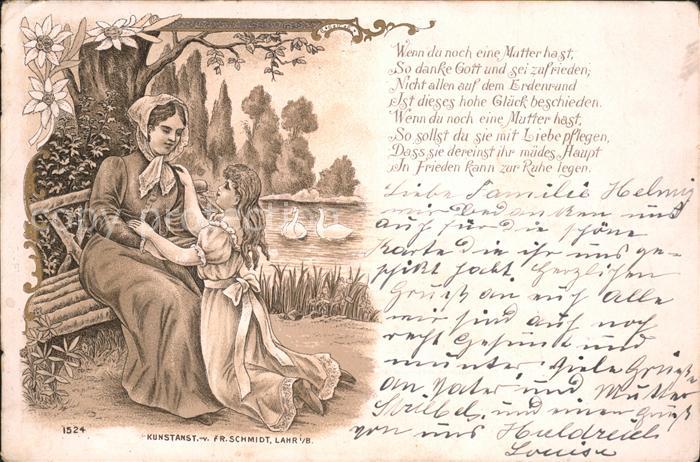 Wenn du noch eine Mutter hast,
So danke Gott und sei zufrieden;
Nicht allen auf dem Erdenrund
Ist dieses hohe Glück beschieden.
Wenn du noch eine Mutter hast,
So sollst du sie mit Liebe pflegen,
Dass sie dereinst ihr müdes Haupt
In Frieden kann zur Ruhe legen.
Liebe Familie Helmi
wir bedanken uns
auch für die schöne
Karte die ihr uns ge-
schikt habt Herzlichen
Gruß an euch alle
wir sind auch noch
recht Gesund und
munter. Viele Grüße
an Vater und Mutter
und einen Gruß
von uns Huldreich
Louise
1524
KUNSTANST. v. FR. SCHMIDT, LAHR i/B.